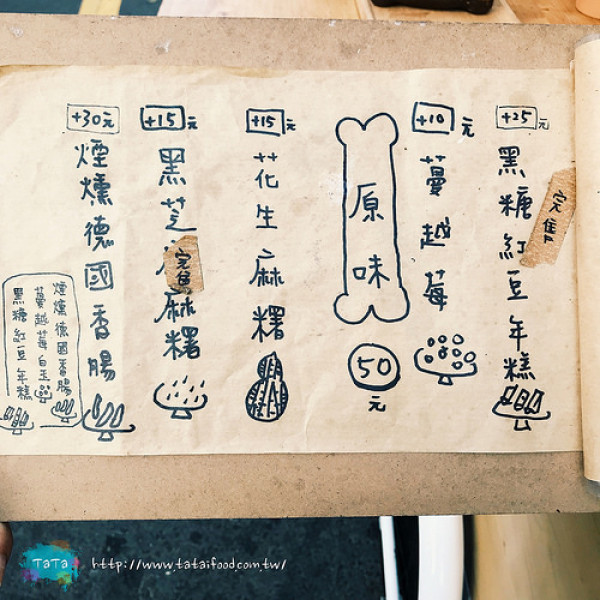 +25元
黑糖紅豆年糕
完售
+10元
蔓越莓
原味
50元
+15元
花生麻糬
+15元
黑芝麻糬
完售
+30元
煙燻德國香腸
煙燻德國香腸
蔓越莓白玉
黑糖紅豆年糕
TaTa
http://www.tataifood.com.tw/